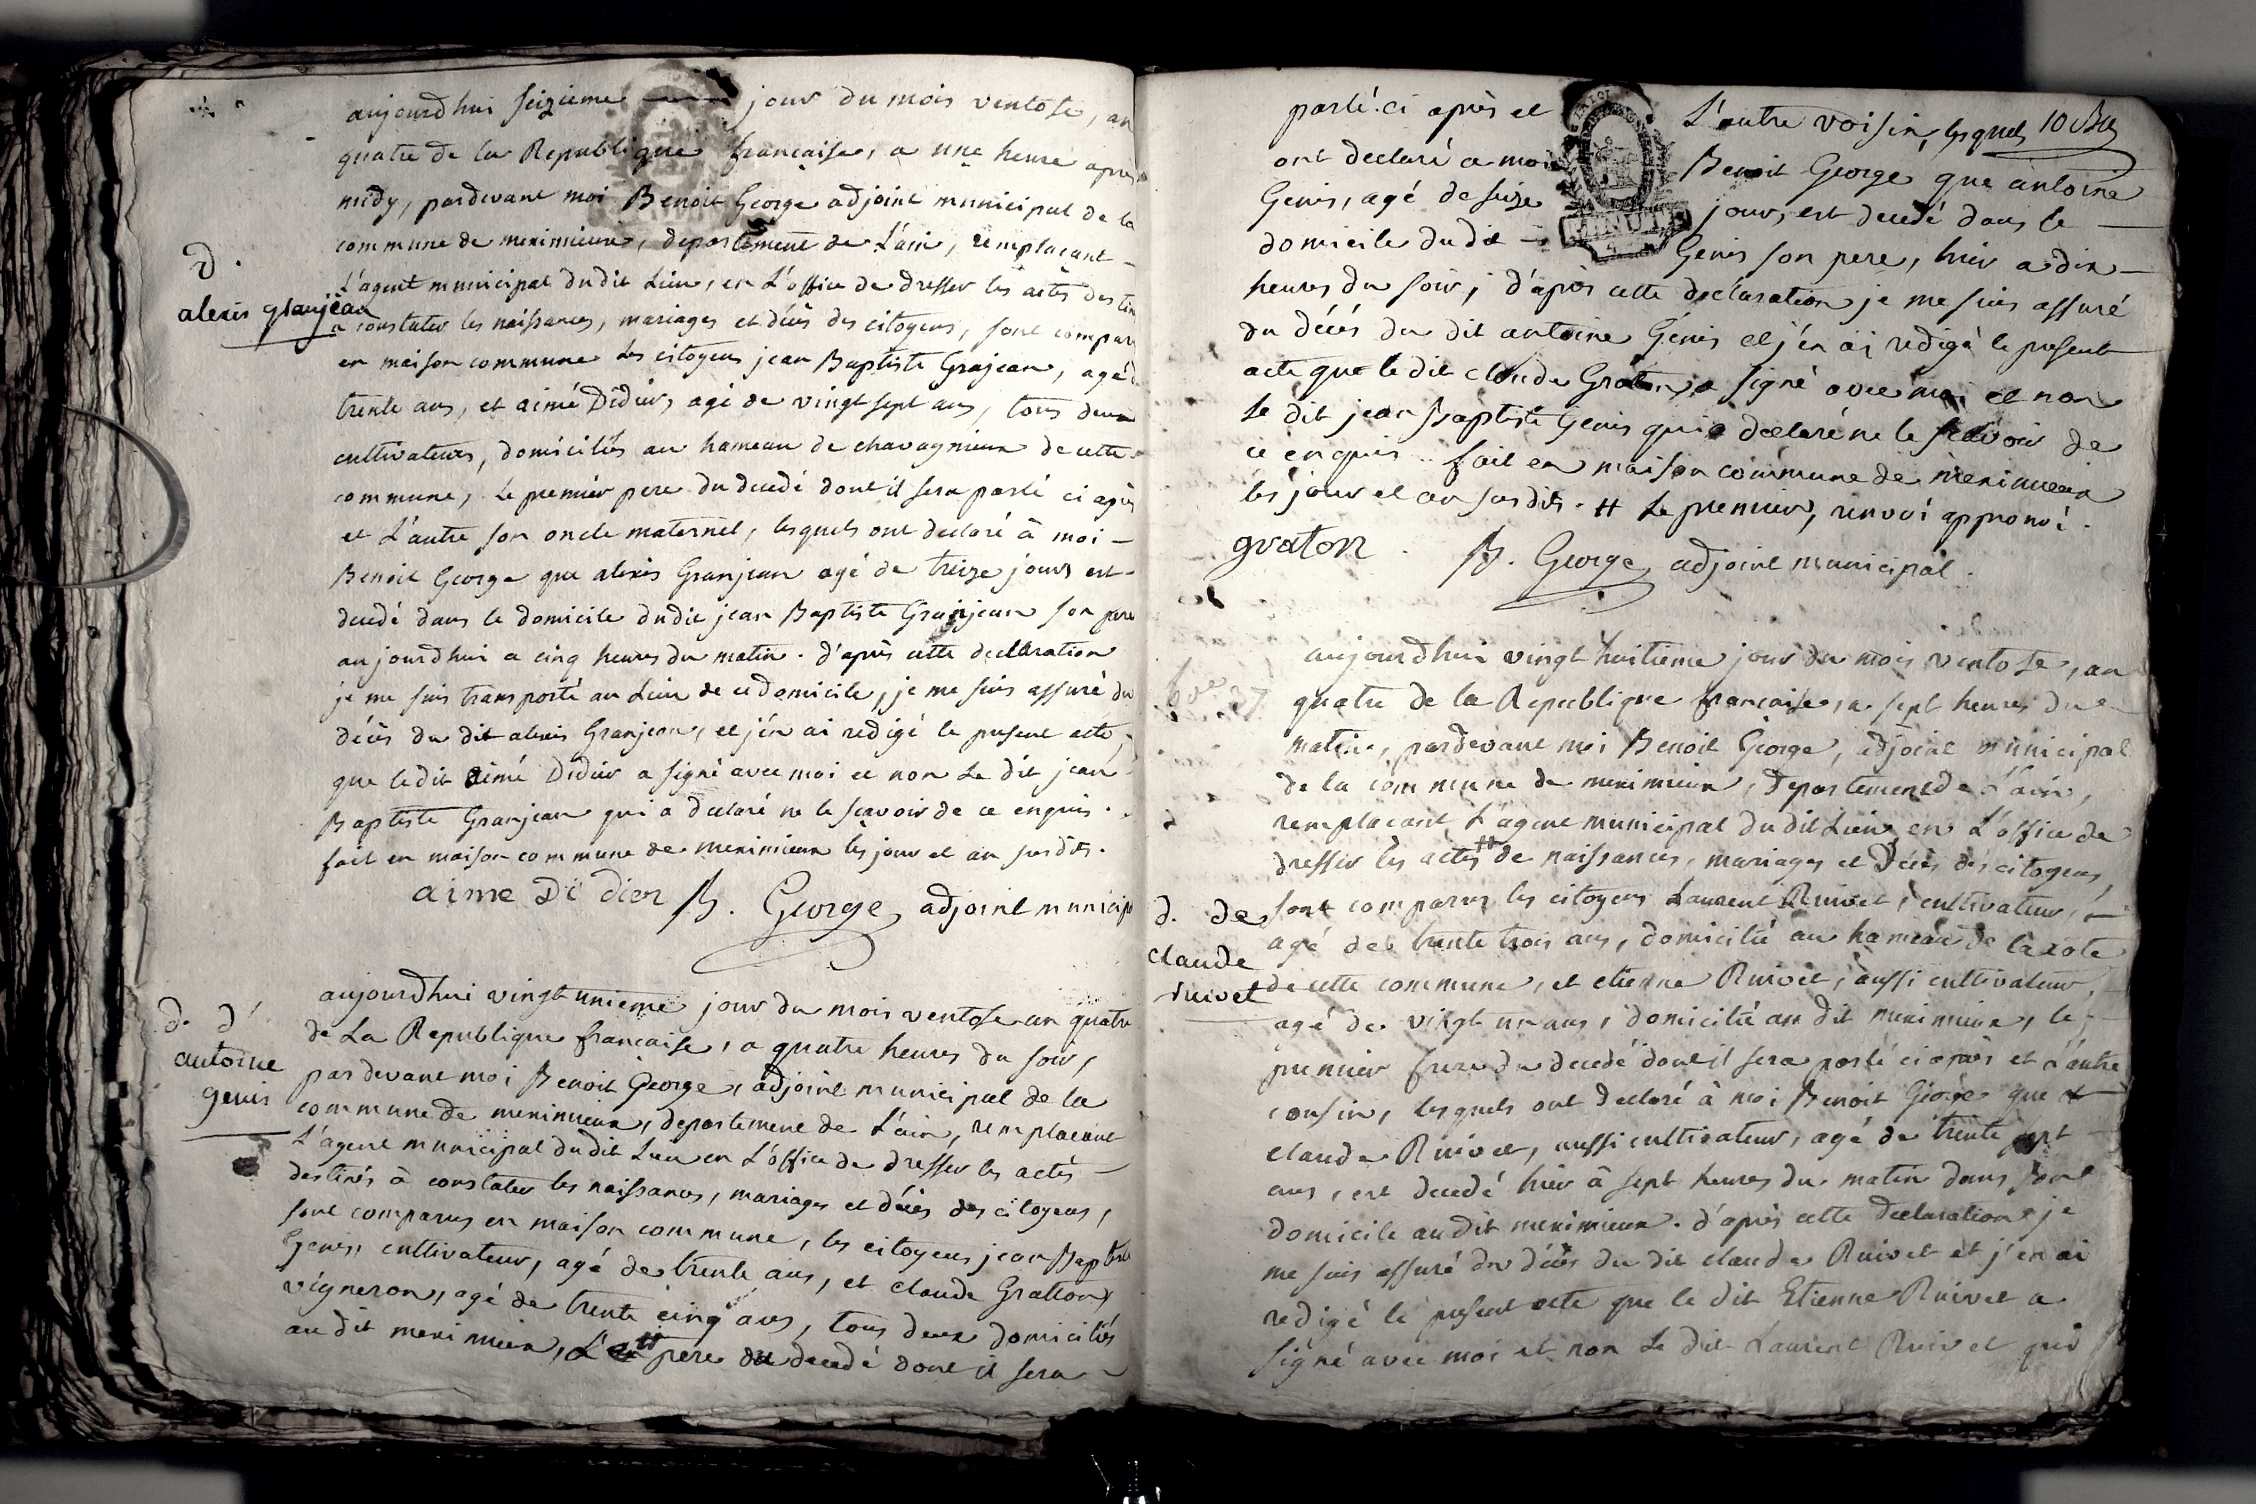 aujourdhui seizieme jour du mois ventose, an
quatre de la Republique francaise, a une heure après
midy, pardevant moi Benoit George adjoint municipal de la
commune de meximieux, departement de L'ain, remplacant
L'agent municipal dudit Lieu, en L'office de dresser les actes destinés
a constater les naissances, mariages et décès des citoyens, sont comparus
en maison commune les citoyens jean Baptiste Granjean, agé de
trente ans, et aimé Didier, agé de vingt sept ans, tous deux
cultivateurs, domiciliés au hameau de chavagnieux de cette
commune, Le premier pere du decedé dont il sera parlé ci après
et L'autre son oncle maternel, lesquels ont declaré à moi
Benoit George que alexis Granjean agé de treize jours est
decedé dans le domicile dudit jean Baptiste Granjean son pere
aujourdhui a cinq heures du matin. d'après cette declaration
je me suis transporté au Lieu de ce domicile, je me suis assuré du
décès du dit alexis Granjean, et j'en ai redigé le present acte,
que le dit aimé Didier a signé avec moi et non Le dit jean
Baptiste Granjean qui a declaré ne le scavoir de ce enquis.
fait en maison commune de meximieux les jour et an susdits.
aime Di dier B. George, adjoint municip
D.
alexis granjean
aujourdhui vingt unieme jour du mois ventose an quatre
de La Republique francaise, a quatre heures du soir,
pardevant moi Benoit George, adjoint municipal de la
commune de meximieux, departement de L'ain, remplacant
L'agent municipal dudit Lieu en L'office de dresser les actes
destinés à constater les naissances, mariages et décès des citoyens,
sont comparus en maison commune, les citoyens jean Baptiste
Genis, cultivateur, agé de trente ans, et claude Gratton,
vigneron, agé de trente cinq ans, tous deux domiciliés
au dit meximieux, # pere du decedé dont il sera
d. d'
antoine
genis
parlé ci après et L'autre voisin, lesquels 10
ont declaré a moi Benoit George que antoine
Genis, agé de seize jours, est decedé dans le
domicile du dit Genis son pere, hier a dix
heures du soir; d'après cette declaration je me suis assuré
du décès du dit antoine Genis et j'en ai redigé le present
acte que le dit claude Graton a signé avec moi et non
le dit jean Baptiste Genis qui a declaré ne le scavoir de
ce enquis. fait en maison commune de meximieux
les jour et an susdits. # Le premier, renvoi approuvé.
graton. B. George, adjoint municipal.
aujourdhui vingt huitieme jour du mois ventose, an
quatre de la Republique francaise, a sept heures du
matin, pardevant moi Benoit George, adjoint municipal
de la commune de meximieux, departement de L'ain,
remplacant L'agent municipal dudit Lieu en L'office de
dresser les actes # de naissances, mariages et décès des citoyens,
sont comparus les citoyens Laurent Ruivet, cultivateur,
agé de trente trois ans, domicilié au hameau de la cote
de cette commune, et etienne Ruivet, aussi cultivateur,
agé de vingt un ans, domicilié au dit meximieux, le
premier frere du decedé dont il sera parlé ci après et L'autre
cousin, lesquels ont declaré à moi Benoit George que
claude Ruivet, aussi cultivateur, agé de trente sept
ans, est decedé hier à sept heures du matin dans son
domicile audit meximieux. d'après cette declaration je
me suis assuré du décès du dit claude Ruivet et j'en ai
redigé le present acte que le dit Etienne Ruivet a
signé avec moi et non Le dit Laurent Ruivet qui
d. de
claude
ruivet